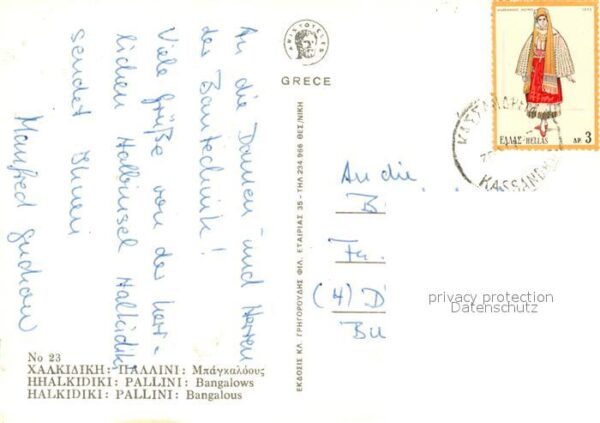 An die Damen und Herren
der Bautechnik!
Viele Grüße von der herr-
lichen Halbinsel Halkidiki
sendet Ihnen
Manfred
ΑΡΙΣΤΟΤΕΛΗΣ
GRECE
ΕΚΔΟΣΕΙΣ ΚΛ. ΓΡΗΓΟΡΟΥΔΗΣ ΦΙΛ. ΕΤΑΙΡΙΑΣ 35 - ΤΗΛ. 234.966 ΘΕΣ/ΝΙΚΗ
ΕΛΛΑΣ-HELLAS ΔΡ. 3
ΚΑΣΣΑΝΔΡΕΙΑ
KASSANDR
An die
B
Fa.
(4) D
Bu
privacy protection
Datenschutz
No 23
ΧΑΛΚΙΔΙΚΗ: ΠΑΛΛΙΝΙ: Μπάγκαλόους
HHALKIDIKI: PALLINI: Bangalows
HALKIDIKI: PALLINI: Bangalous